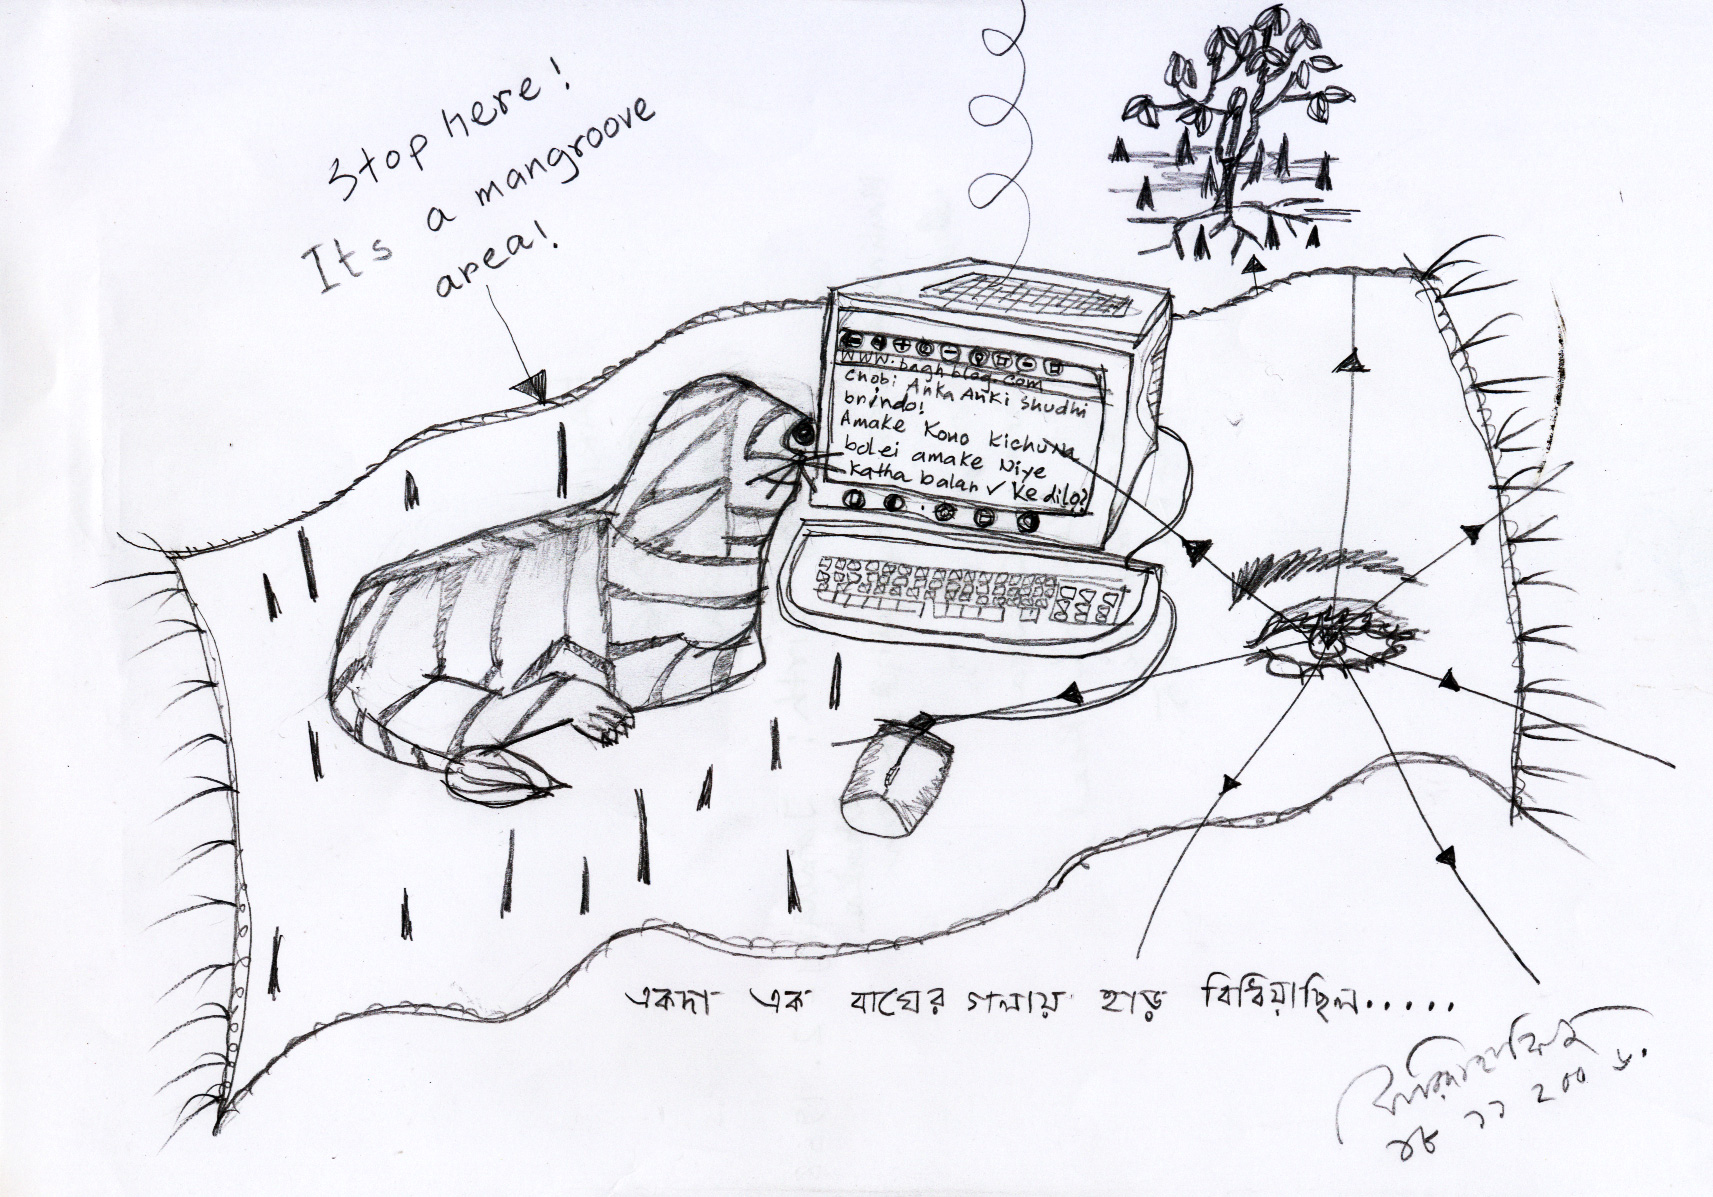 Stop here!
Its a mangroove
area!
www.baghblog.com
Chobi Anka Anki Shudhi
brindo!
Amake Kono Kichu Na
bolei amake Niye
Katha balar ✓ ke dilo?
একদা এক বাঘের গলায় হাড় বিধিয়াছিল.....